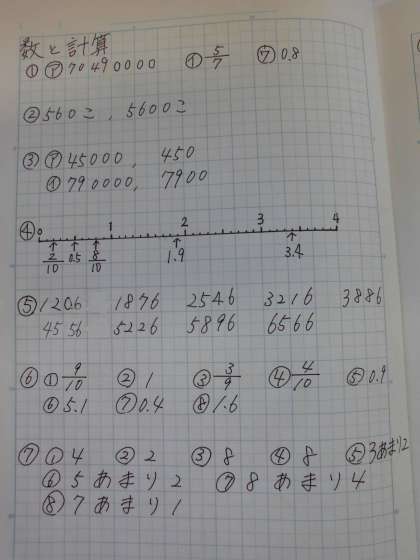 数と計算
① ㋐ 70490000 ㋑ 5/7 ㋒ 0.8
② 560こ, 5600こ
③ ㋐ 45000, 450
㋑ 790000, 7900
④ 0 1 2 3 4
2/10 0.5 8/10 1.9 3.4
⑤ 1206 1876 2546 3216 3886
4556 5226 5896 6566
⑥ ① 9/10 ② 1 ③ 3/9 ④ 4/10 ⑤ 0.9
⑥ 5.1 ⑦ 0.4 ⑧ 1.6
⑦ ① 4 ② 2 ③ 8 ④ 8 ⑤ 3あまり2
⑥ 5あまり2 ⑦ 8あまり4
⑧ 7あまり1